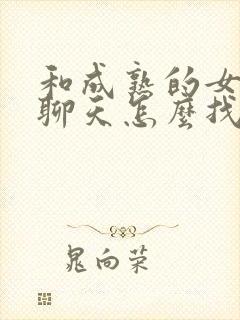 和成熟的女
聊天怎麼找
晁向荣